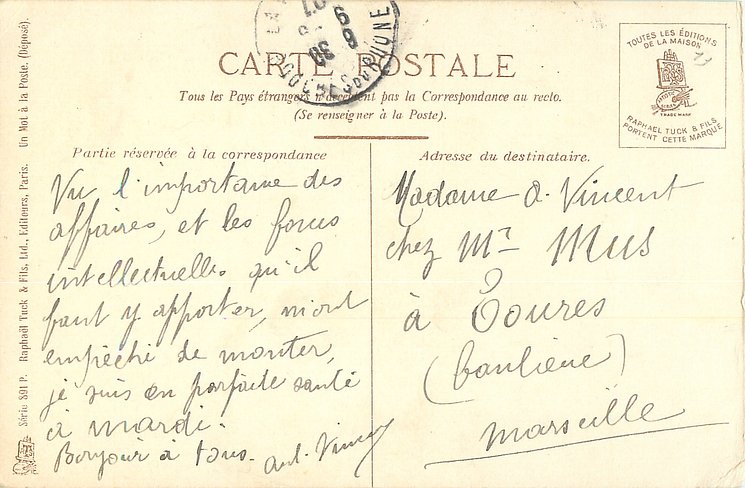 CARTE POSTALE
Tous les Pays étrangers n'acceptent pas la Correspondance au recto.
(Se renseigner à la Poste).
Partie réservée à la correspondance
Vu l'importance des
affaires, et les forces
intellectuelles qu'il
faut y apporter, m'ont
empêché de monter,
je suis en parfaite santé
à mardi.
Bonjour à tous. Ant. Vincent
Adresse du destinataire.
Madame A. Vincent
chez Mr Mus
à Toures
(banlieue)
Marseille
TOUTES LES ÉDITIONS
DE LA MAISON
TRADE MARK
RAPHAEL TUCK & FILS
PORTENT CETTE MARQUE
Série 891 P. Raphaël Tuck & Fils, Ltd., Editeurs, Paris. Un Mot à la Poste. (Déposé).